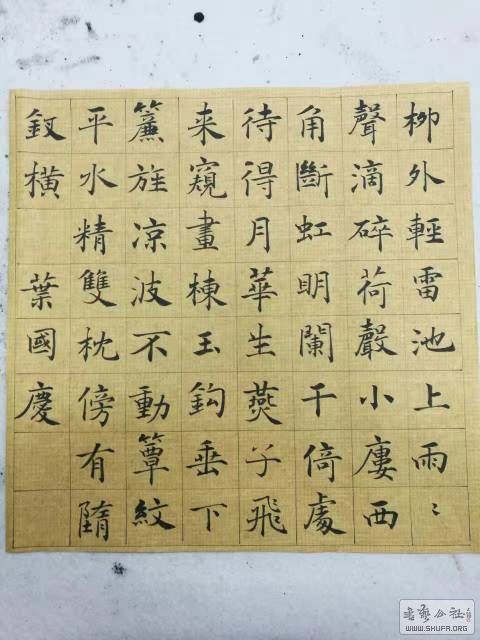 柳外輕雷池上雨〻
聲滴碎荷聲小廔西
角斷虹明闌干倚處
待得月華生燕子飛
来窺畫棟玉鈎垂下
簾旌凉波不動簟紋
平水精雙枕傍有墮
釵橫 葉國慶
書藝公社
WWW.SHUFA.ORG